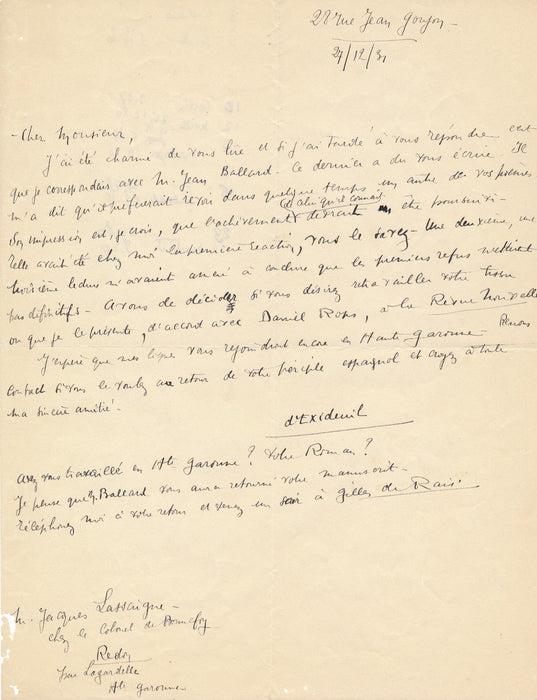 28 rue Jean Goujon -
27/12/31
- Cher Monsieur,
J'ai été charmé de vous lire et si j'ai tardé à vous répondre c'est
que je correspondais avec M. Jean Ballard. Ce dernier a du vous écrire. Il
m'a dit qu'il préférerait revoir dans quelque temps un autre de vos poèmes
Son impression est, je crois, que l'achèvement de celui qu'il connait devrait être poursuivi.
Telle avait été chez moi la première réaction, vous le savez - Une deuxième, une
troisième lecture m'avaient amené à conclure que les premiers refus n'étaient
pas définitifs. A vous de décider si vous désirez retravailler votre
ou que je le présente, d'accord avec Daniel Rops, à la Revue Nouvelle
J'espère que mes lignes vous rejoindront encore en Haute Garonne. Prenons
contact si vous le voulez au retour de votre périple espagnol et croyez à toute
ma sincère amitié.
d'Exideuil
Avez vous travaillé en Hte Garonne? Votre Roman?
Je pense que M. Ballard vous aura retourné votre manuscrit -
Téléphonez moi à votre retour et venez un soir à Gilles de Rais.
M. Jacques Lassaigne -
chez le Colonel de Bonnefoy
Redon
par Lagardelle
Hte Garonne